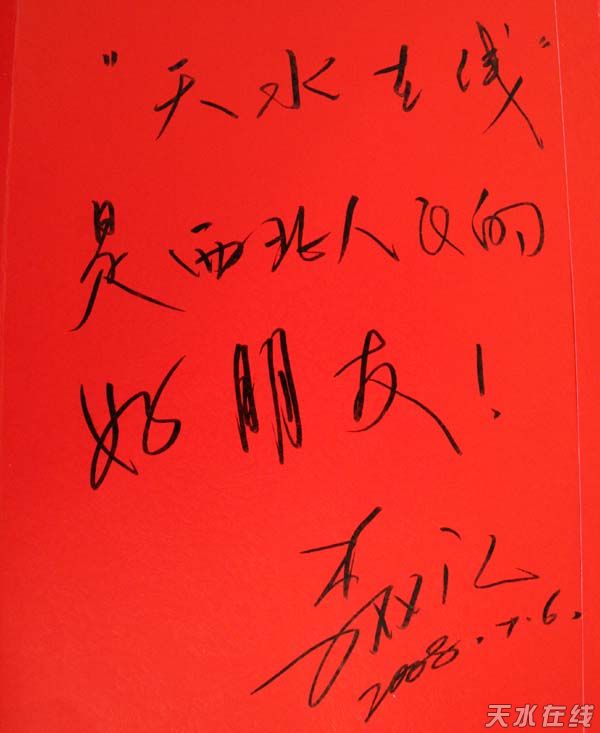 "天水在线"
是西北人民的
好朋友！
李双江
2008.7.6.
天水在线